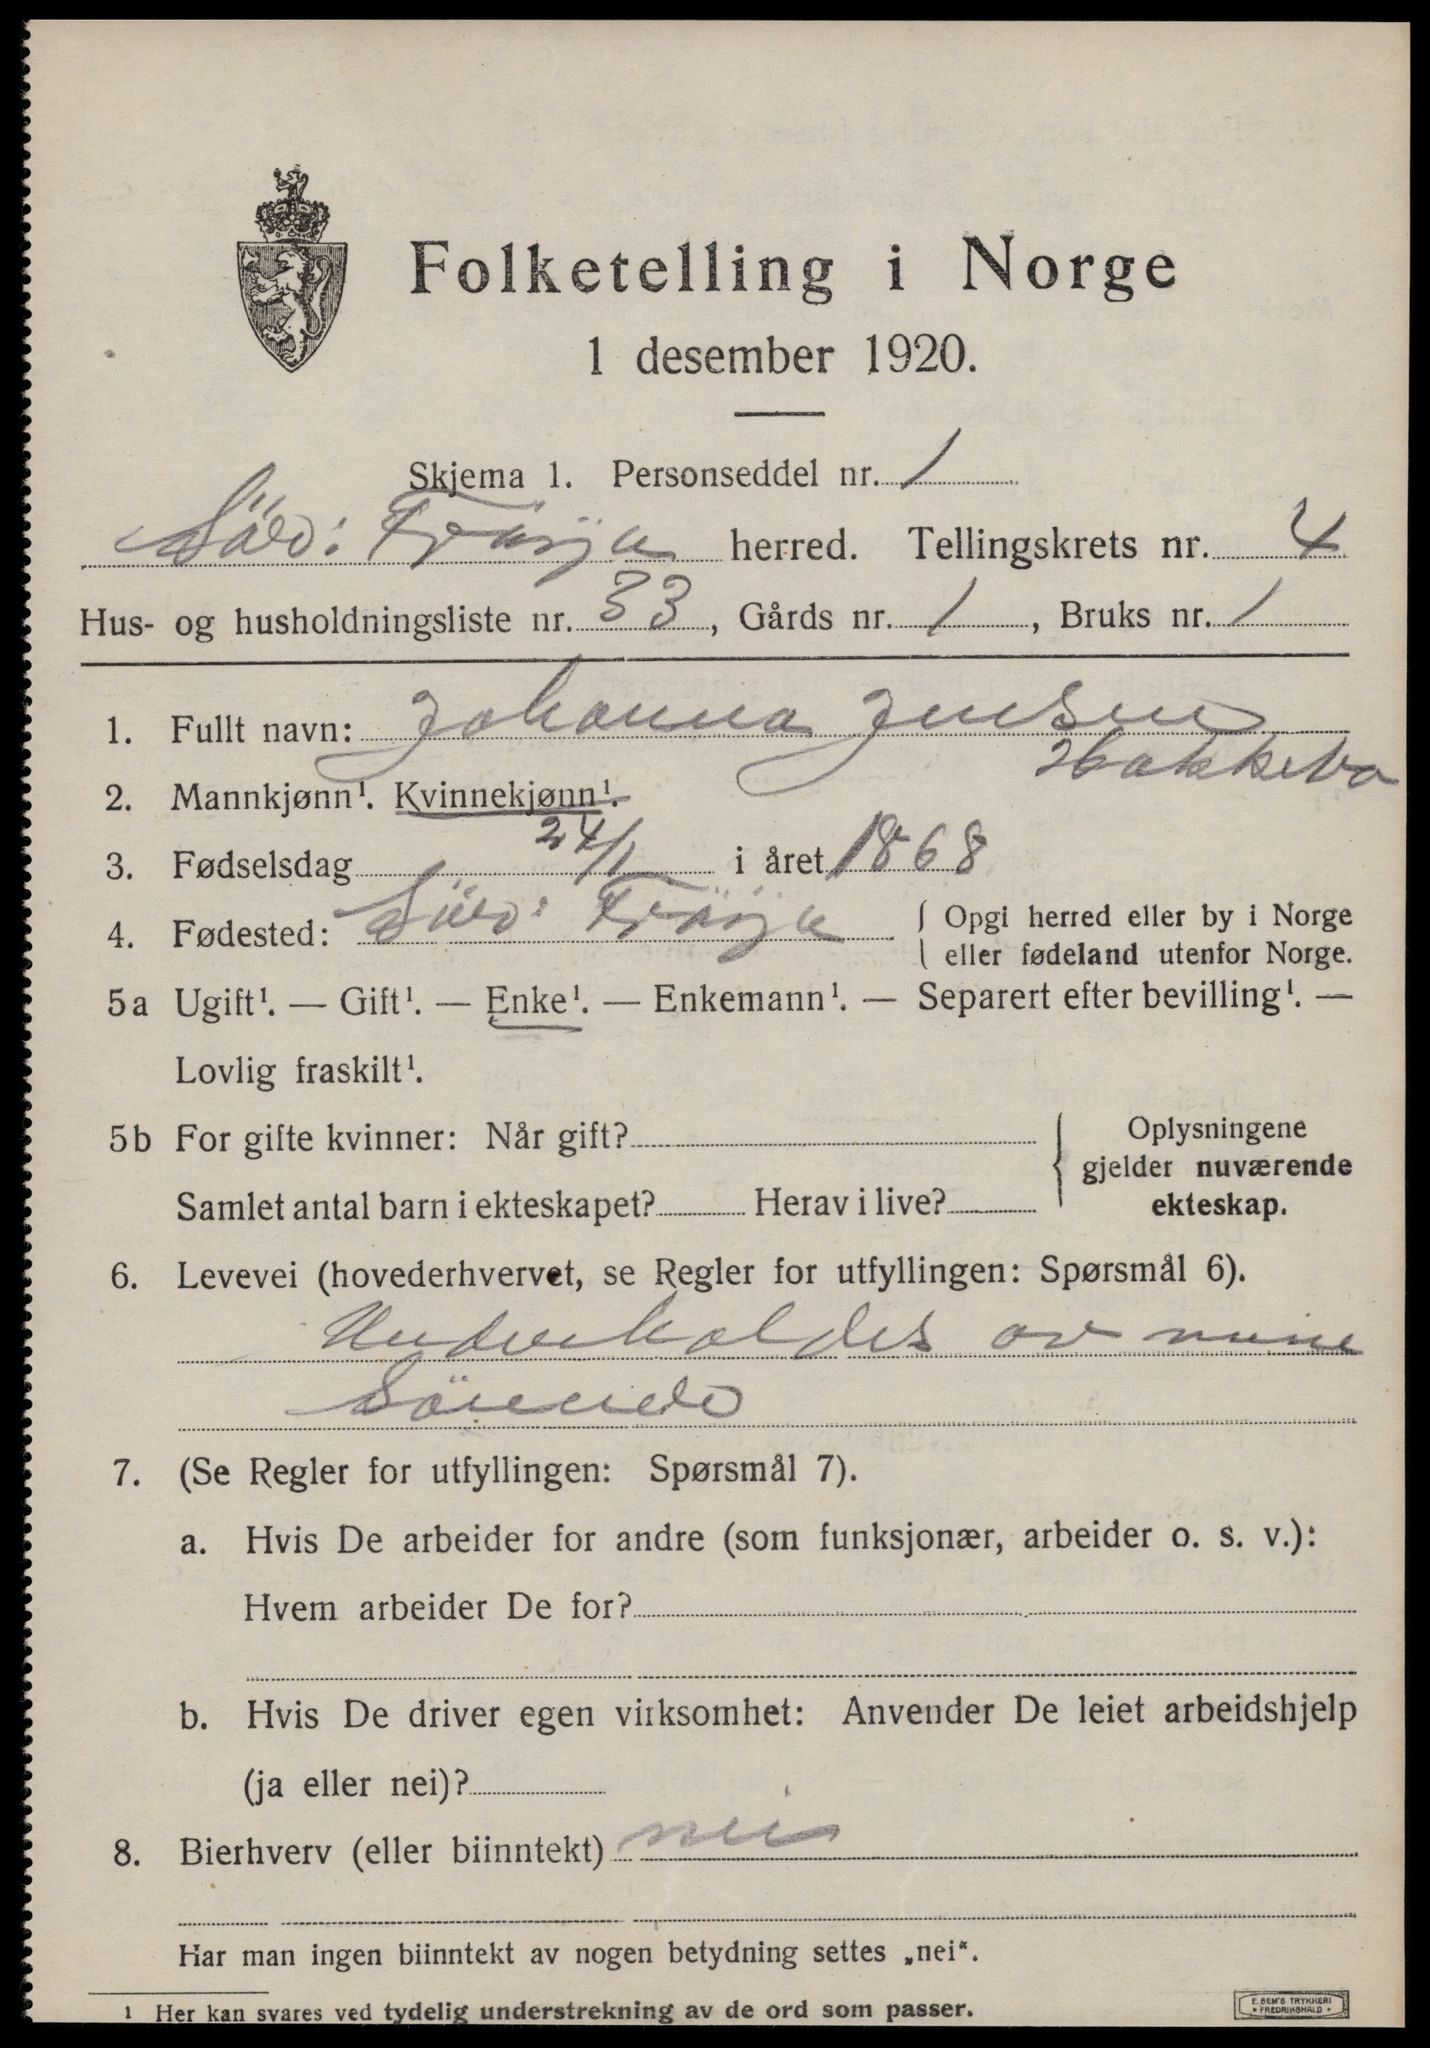 Folketelling i Norge
1 desember 1920.
Skjema 1. Personseddel nr. 1
Sör: Fröija herred. Tellingskrets nr. 4
Hus- og husholdningsliste nr. 33, Gårds nr. 1, Bruks nr. 1
1. Fullt navn: Johanna Jensen
2. Mannkjønn¹. Kvinnekjønn¹.
3. Fødselsdag 24/1 i året 1868
4. Fødested: Sör: Fröija { Opgi herred eller by i Norge
eller fødeland utenfor Norge.
5a Ugift¹. — Gift¹. — Enke¹. — Enkemann¹. — Separert efter bevilling¹. —
Lovlig fraskilt¹.
5b For gifte kvinner: Når gift?
Samlet antal barn i ekteskapet? Herav i live?
Oplysningene
gjelder nuværende
ekteskap.
6. Levevei (hovederhvervet, se Regler for utfyllingen: Spørsmål 6).
Underholdes av mine
7. (Se Regler for utfyllingen: Spørsmål 7).
a. Hvis De arbeider for andre (som funksjonær, arbeider o. s. v.):
Hvem arbeider De for?
b. Hvis De driver egen virksomhet: Anvender De leiet arbeidshjelp
(ja eller nei)?
8. Bierhverv (eller biinntekt) nei
Har man ingen biinntekt av nogen betydning settes „nei“.
¹ Her kan svares ved tydelig understrekning av de ord som passer.
E. SEM'S TRYKKERI
FREDRIKSHALD